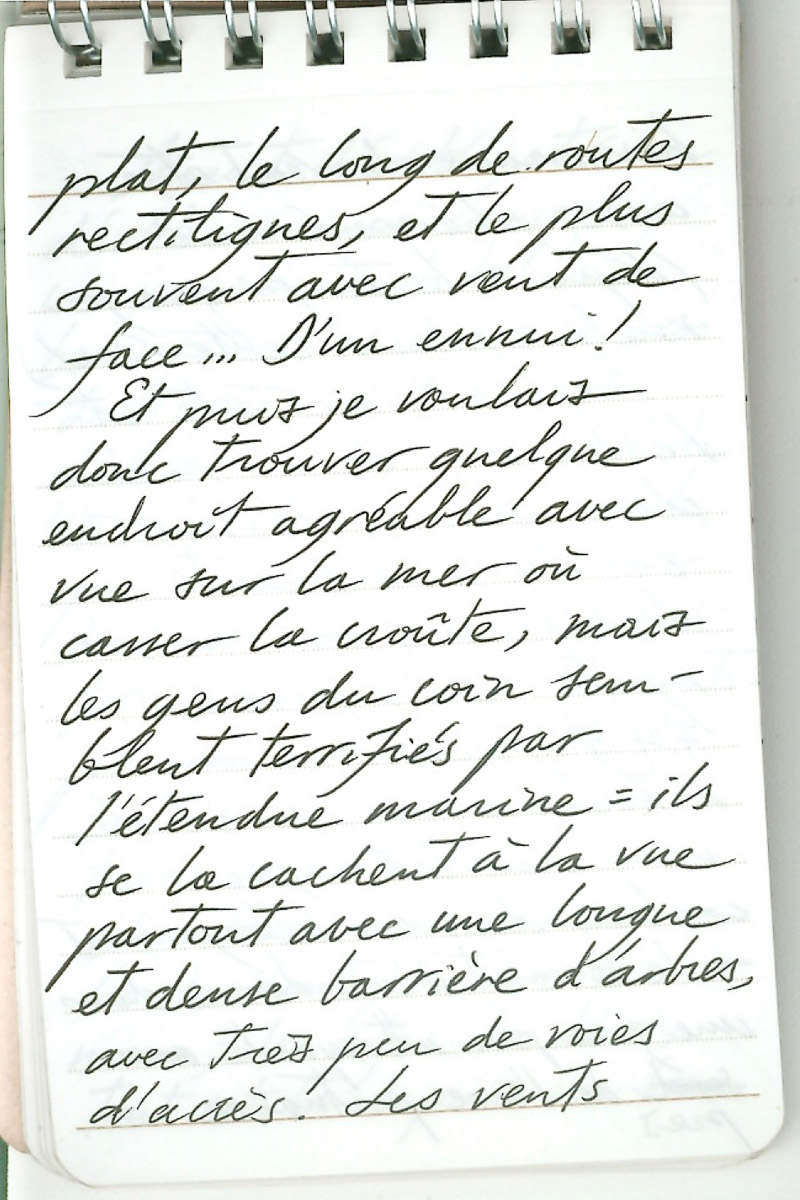 plat, le long de routes
rectilignes, et le plus
souvent avec vent de
face... D'un ennui!
Et puis je voulais
donc trouver quelque
endroit agréable avec
vue sur la mer où
casser la croûte, mais
les gens du coin sem-
blent terrifiés par
l'étendue marine = ils
se la cachent à la vue
partout avec une longue
et dense barrière d'arbres,
avec très peu de voies
d'accès. Les vents